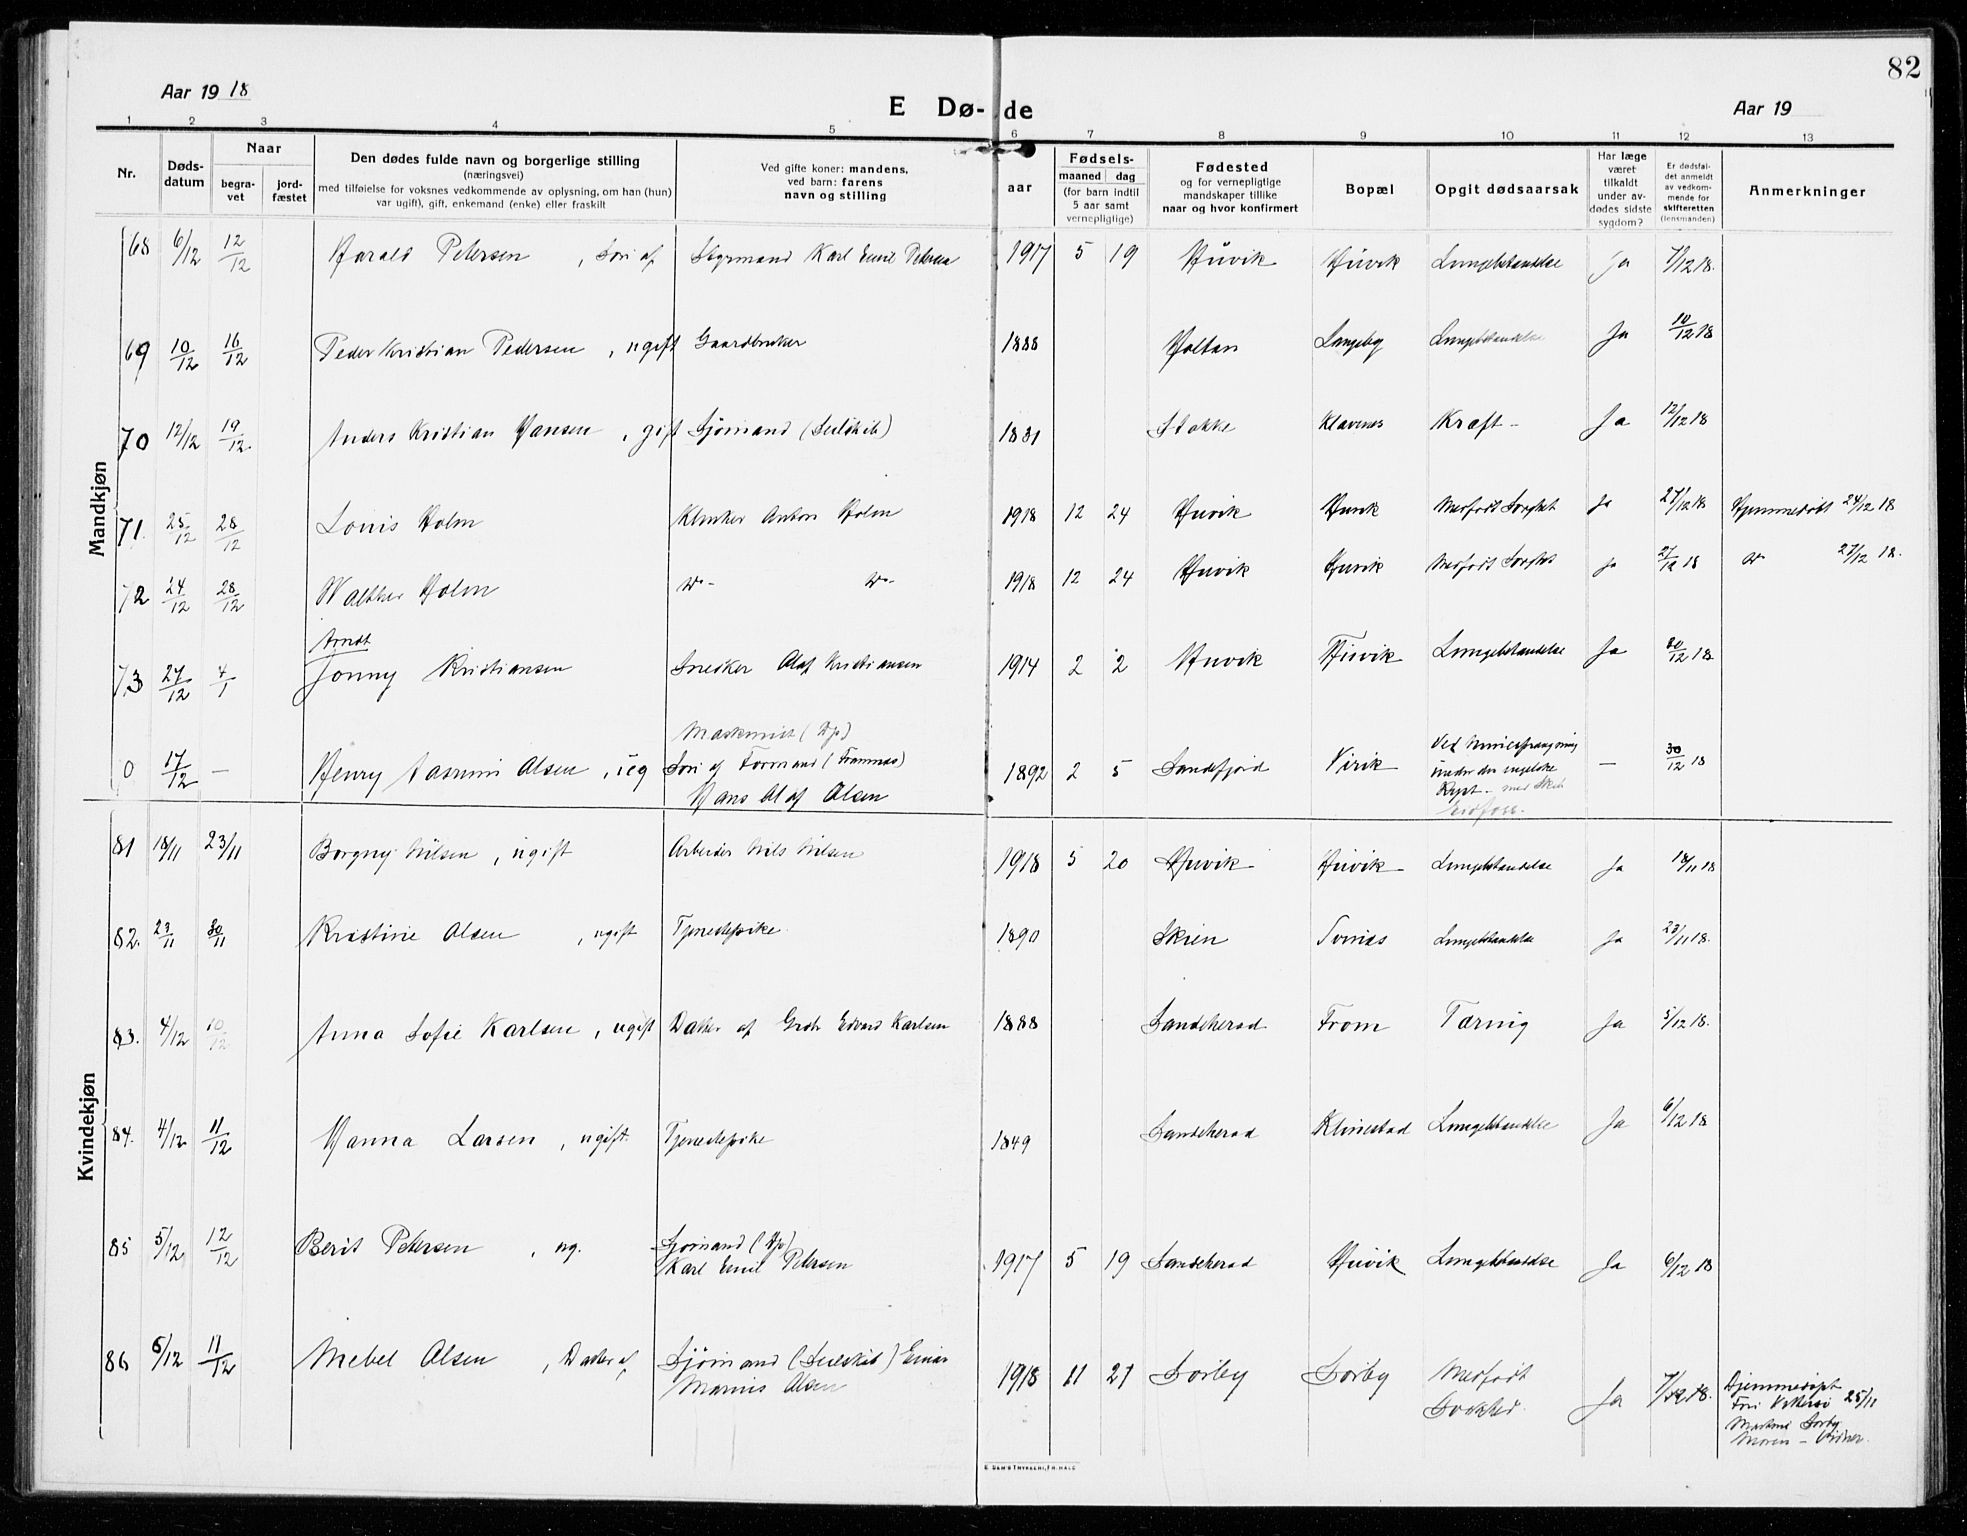 82
Aar 19 18
E Dø- de
Aar 19
1 2 3 4 5 6 7 8 9 10 11 12 13
Nr.
Døds-
datum
Naar
begra-
vet
jord-
fæstet
Den dødes fulde navn og borgerlige stilling
(næringsvei)
med tilføielse for voksnes vedkommende av oplysning, om han (hun)
var ugift), gift, enkemand (enke) eller fraskilt
Ved gifte koner: mandens,
ved barn: farens
navn og stilling
aar
Fødsels-
maaned dag
(for barn indtil
5 aar samt
vernepligtige)
Fødested
og for vernepligtige
mandskaper tillike
naar og hvor konfirmert
Bopæl
Opgit dødsaarsak
Har læge
været
tilkaldt
under av-
dødes sidste
sygdom?
Er dødsfal-
det anmeldt
av vedkom-
mende for
skifteretten
(lensmanden)
Anmerkninger
Mandkjøn
68 6/12 12/12 Harald Petersen, Søn af Styrmand Karl Emil Petersen 1917 5 19 Huvik Huvik Lungebetændelse Ja 7/12 18.
69 10/12 16/12 Peder Kristian Pedersen, ugift Gaardbruker 1888 Holtan Langeby Lungebetændelse Ja 10/12 18
70 12/12 19/12. Anders Kristian Hansen, gift Sjømand (Seilskib) 1881 Stokke Klavenes Kræft - Ja 12/12 18
71. 25/12 28/12 Louis Holm Klinker Anton Holm 1918 12 24 Huvik Huvik Medfødt Ja 27/12 18 Hjemmedøbt 24/12 18
72 24/12 28/12 Walther Holm 1918 12 24 Huvik Huvik Medfødt Ja 27/12 18 27/12 18.
Arndt
73 27/12 4/1 Jonny Kristiansen Snedker Olaf Kristiansen 1914 2 2 Huvik Huvik Lungebetændelse Ja 30/12 18
Maskinist (Dp)
0 17/12 — Henry Olsen, ug Søn af Formand (Framnæs) 1892 2 5 Sandefjord Virik Ved Minesprængning — 30/12 18
Hans Olaf Olsen
under den engelske
Kyst - med Skib
Kvindekjøn
81 18/11 23/11 Borgny Nilsen, ugift Arbeider Nils Nilsen 1918 5 20 Huvik Huvik Lungebetændelse Ja 18/11 18
82. 23/11 30/11 Kristine Olsen, ugift Tjenestepike 1890 Skien Lungebetændelse Ja 23/11 18.
83. 4/12 10/12 Anna Sofie Karlsen, ugift Datter af Grdb Edvard Karlsen 1888 Sandeherad From Tæring Ja 5/12 18.
84. 4/12 11/12 Hanna Larsen, ugift. Tjenestepike 1849 Sandeherad Klinestad Lungebetændelse Ja 6/12 18
85 5/12 12/12 Berit Petersen, ug. Sjømand (Dp) 1917 5 19 Sandeherad Huvik Lungebetændelse Ja 6/12 18
Karl Emil Petersen
86 5/12 11/12 Mebel Olsen, Datter af Sjømand (Seilskib) Einar 1918 11 21 Sørby Sørby Medfødt Ja 7/12 18.
Marius Olsen
Svakhed.
Hjemmedøpt 25/11
Sørby
Moren - Vidner.
E SEM'S TRYKKERI, FR.HALD